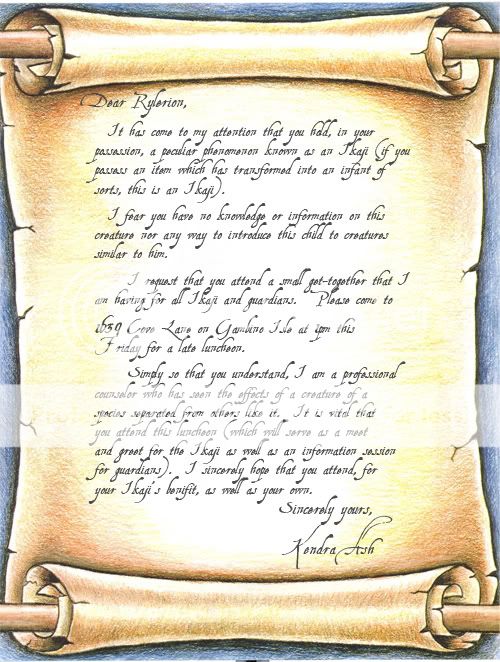 Dear Rylerion,
It has come to my attention that you held, in your
possession, a peculiar phenomenon known as an Ikaji (if you
possess an item which has transformed into an infant of
sorts, this is an Ikaji).
I fear you have no knowledge or information on this
creature nor any way to introduce this child to creatures
similar to him.
I request that you attend a small get-together that I
am having for all Ikaji and guardians. Please come to
1639 Cove Lane on Gambino Isle at 1pm this
Friday for a late luncheon.
Simply so that you understand, I am a professional
counselor who has seen the effects of a creature of a
species separated from others like it. It is vital that
you attend this luncheon (which will serve as a meet
and greet for the Ikaji as well as an information session
for guardians). I sincerely hope that you attend, for
your Ikaji's benifit, as well as your own.
Sincerely yours,
Kendra Ash